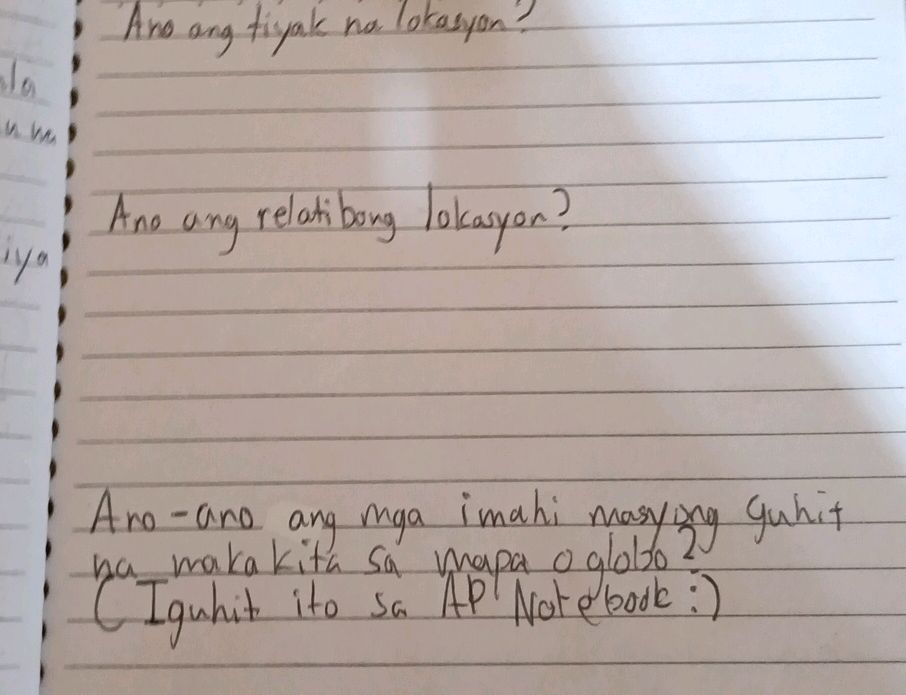 Ano ang tiyak na lokasyon?
la
iya
Ano ang relatibong lokasyon?
Ano-ano ang mga imahi masyong guhit
na makakita sa mapa o globo?
(Iguhit ito sa AP Notebook :)